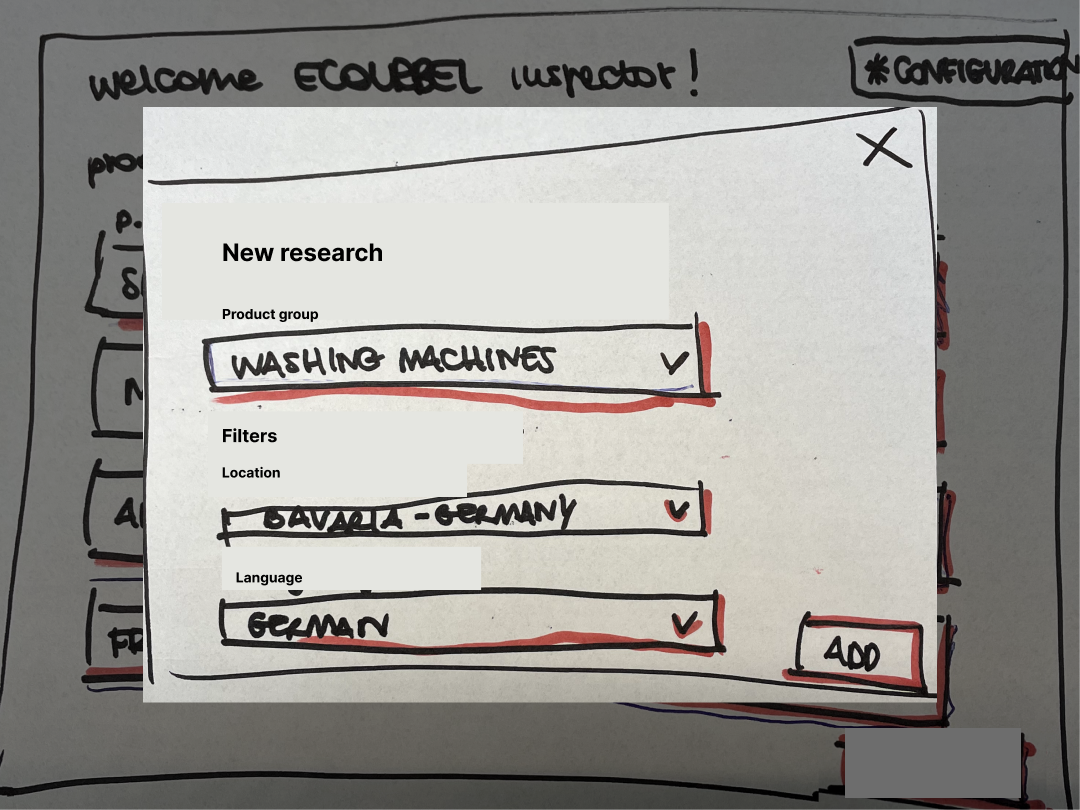 welcome ECOLABEL inspector!
*CONFIGURATION
New research
Product group
WASHING MACHINES
Filters
Location
BAVARIA - GERMANY
Language
GERMAN
ADD